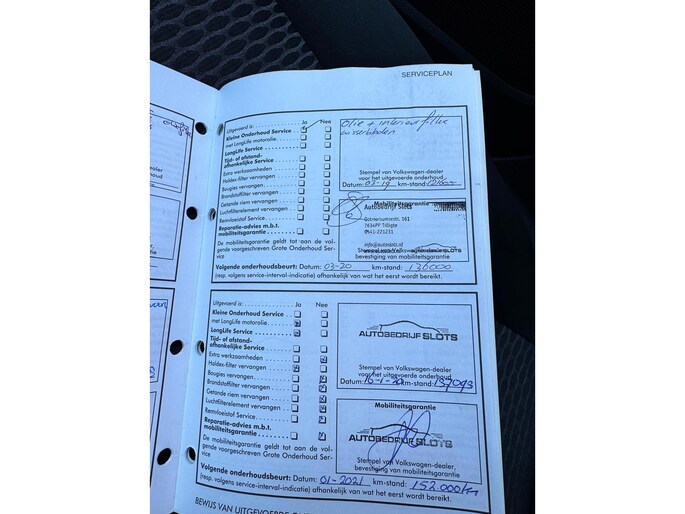 SERVICEPLAN
Uitgevoerd is: Ja Nee
Kleine Onderhoud Service
met LongLife motorolie
LongLife Service
Tijd- of afstand-
afhankelijke Service
Extra werkzaamheden
Haldex-filter vervangen
Bougies vervangen
Brandstoffilter vervangen
Getande riem vervangen
Luchtfilterelement vervangen
Remvloeistof Service
Reparatie-advies m.b.t.
mobiliteitsgarantie
De mobiliteitsgarantie geldt tot aan de vol-
gende voorgeschreven Grote Onderhoud Ser-
vice
olie + interieurfilter
Stempel van Volkswagen-dealer
voor het uitgevoerde onderhoud
Datum: 03-19 km-stand:
Mobiliteitsgarantie
Autobedrijf Slots
161
7634PP Tilligte
0541-221231
info@autoslots.nl
Stempel van Volkswagen-dealer
bevestiging van mobiliteitsgarantie
Volgende onderhoudsbeurt: Datum: 03-20 km-stand: 136000
(resp. volgens service-interval-indicatie) afhankelijk van wat het eerst wordt bereikt.
Uitgevoerd is: Ja Nee
Kleine Onderhoud Service
met LongLife motorolie
LongLife Service
Tijd- of afstand-
afhankelijke Service
Extra werkzaamheden
Haldex-filter vervangen
Bougies vervangen
Brandstoffilter vervangen
Getande riem vervangen
Luchtfilterelement vervangen
Remvloeistof Service
Reparatie-advies m.b.t.
mobiliteitsgarantie
De mobiliteitsgarantie geldt tot aan de vol-
gende voorgeschreven Grote Onderhoud Ser-
vice
AUTOBEDRIJF SLOTS
Stempel van Volkswagen-dealer
voor het uitgevoerde onderhoud
Datum: 16-1-20 km-stand: 137093
Mobiliteitsgarantie
AUTOBEDRIJF SLOTS
Stempel van Volkswagen-dealer,
bevestiging van mobiliteitsgarantie
Volgende onderhoudsbeurt: Datum: 01-2021 km-stand: 152.000km
(resp. volgens service-interval-indicatie) afhankelijk van wat het eerst wordt bereikt.
BEWIJS VAN UITGEVOERDE